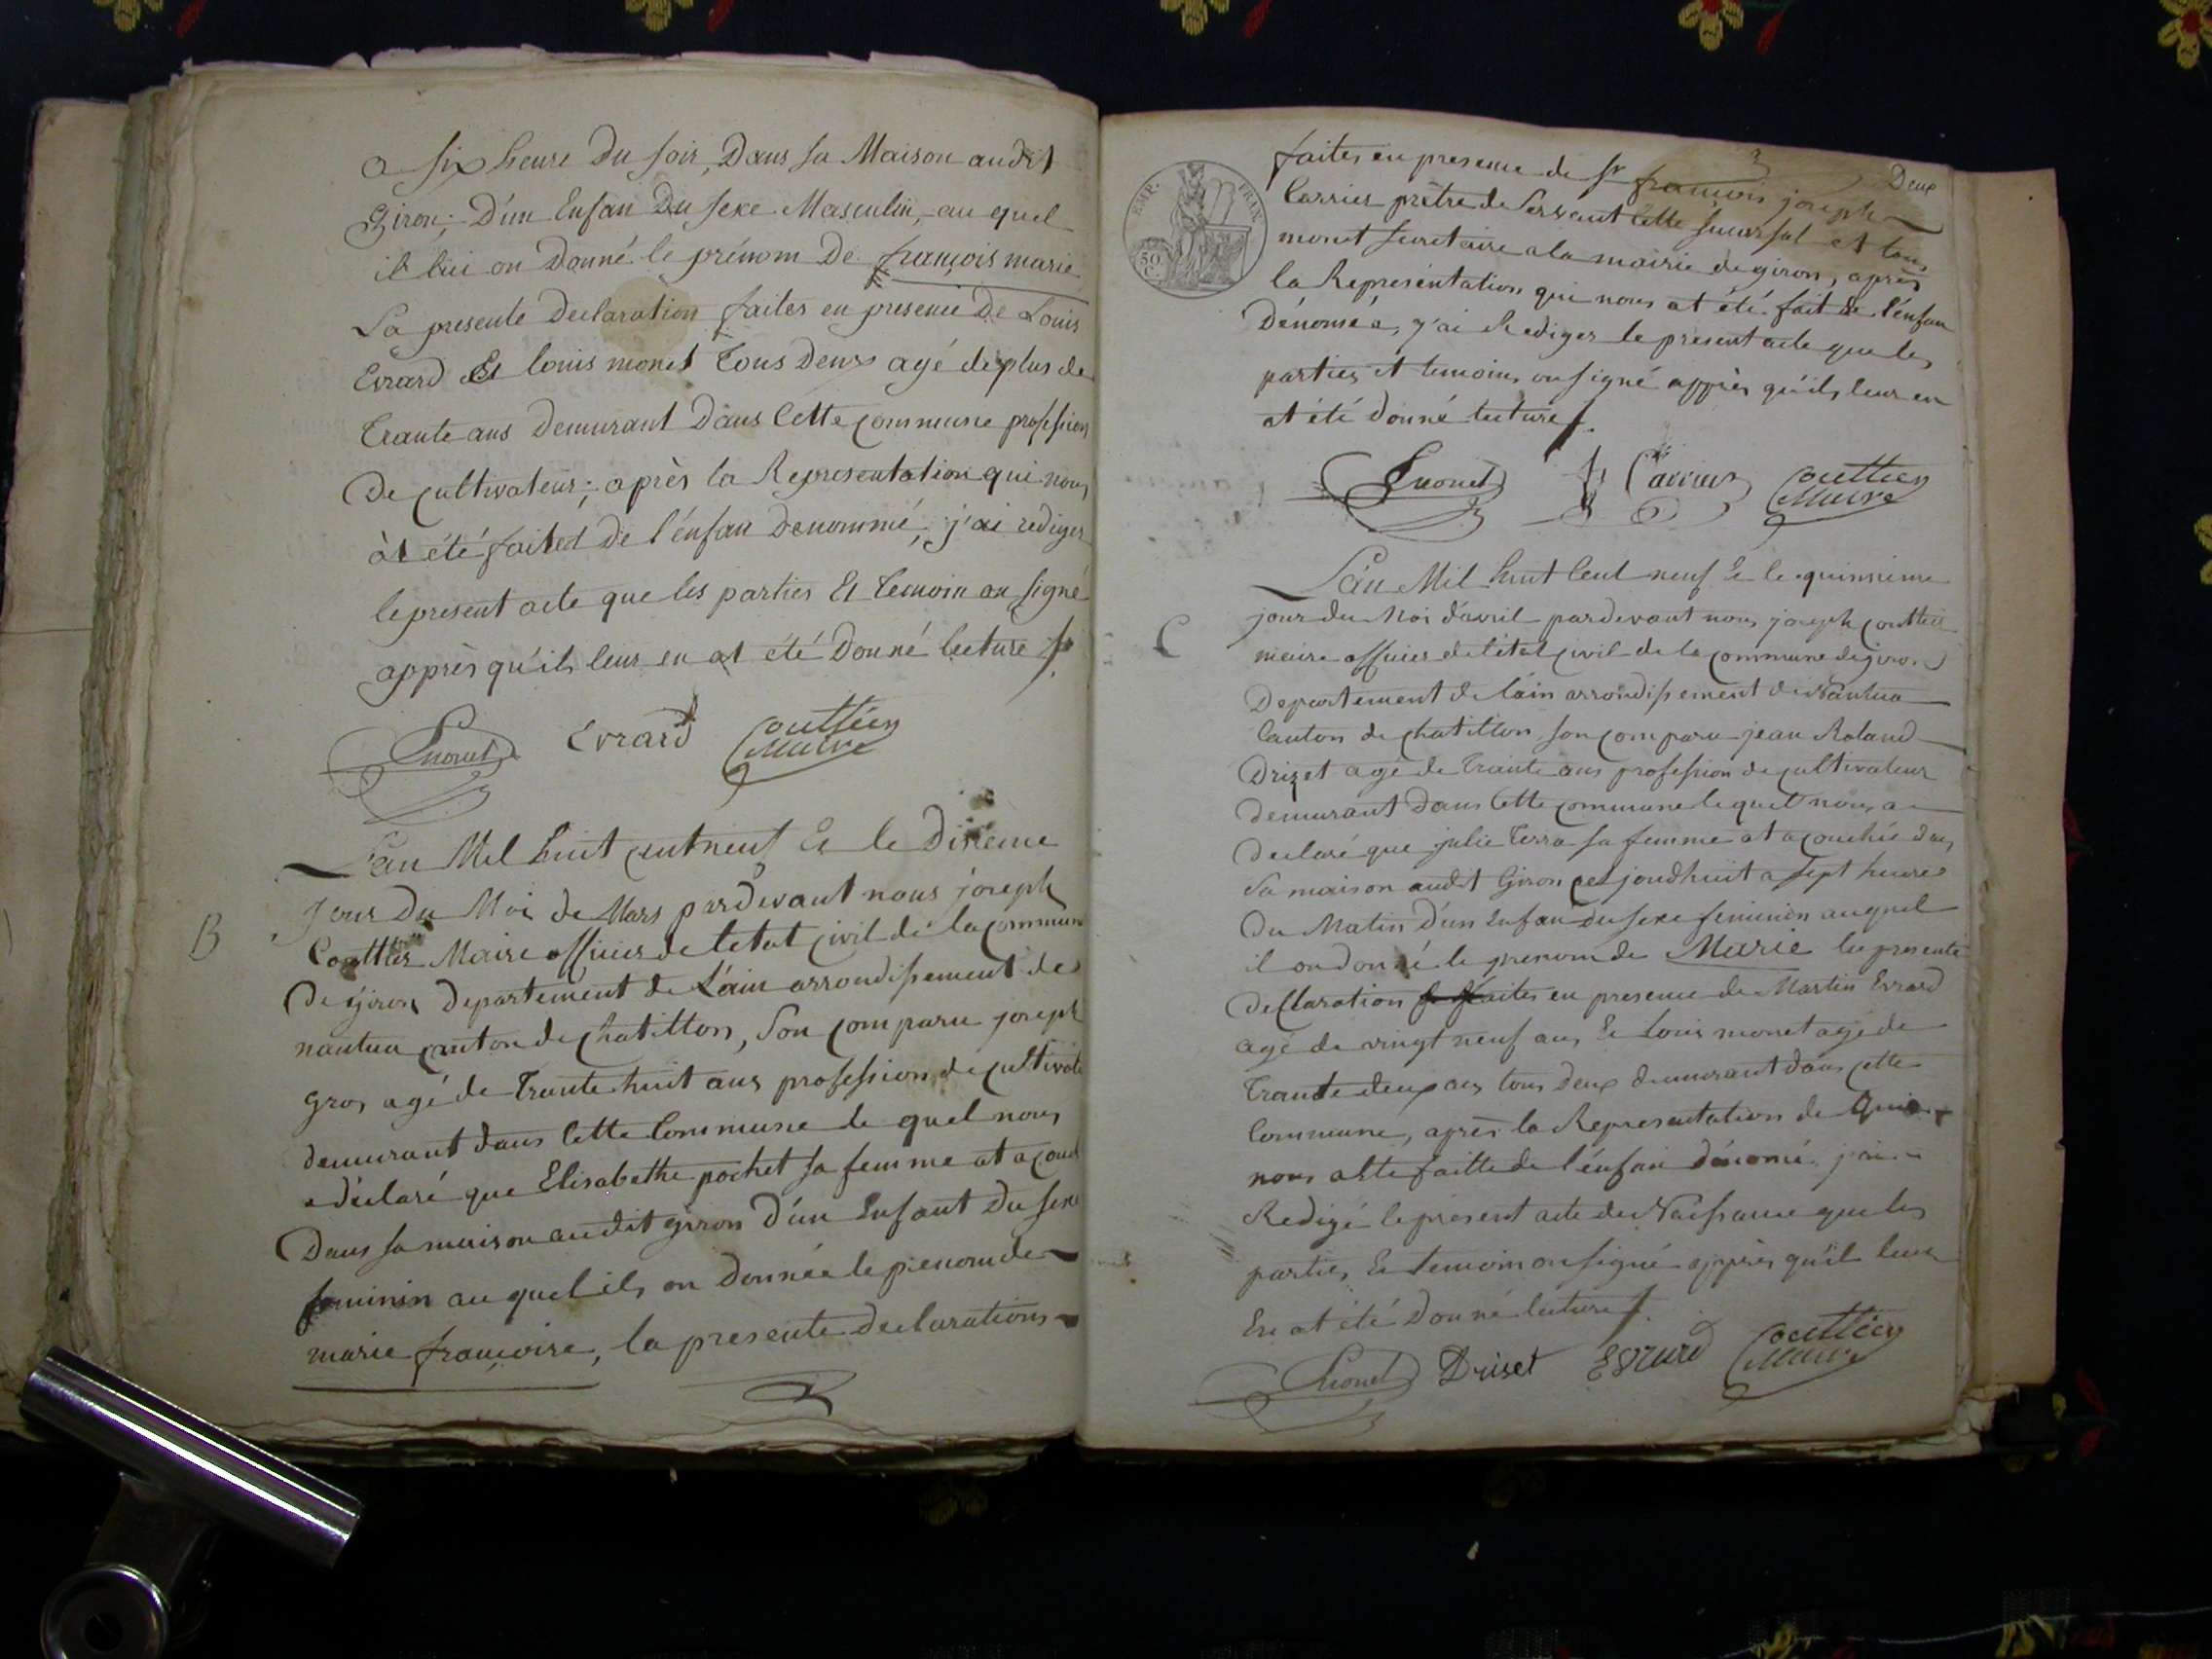 a six heure Du soir, Dans sa Maison audit
Giron; D'un Enfan Du sexe Masculin, au quel
il lui on Donné le prénom De françois marie
La presente Declaration faites en presence De Louis
Evrard Et louis monet Tous Deux agé de plus de
Trante ans Demurant Dans Cette commune profession
De cultivateur; après la Representation qui nous
àt été faited De l'énfan Denommé, j'ai rediger
le present acte que les parties Et Temoin on signé
apprès qu'ils leur en at été Donné lecture
Lmonet Evrard Couttier
Maire
L'an Mil huit cent neuf Et le Dixieme
B
Jour Du Moi de Mars pardevant nous joseph
Couttier Maire officier de letat civil de la commun
De Giron Departement de L'ain arrondissement de
nantua canton de chatillon, Son comparu joseph
gros agé de Trante huit ans profession de cultivat
demurant dans Cette Commune le quel nous
a déclaré que Elisabethe pochet sa femme at acouch
Dans sa maison audit giron d'un Enfant Du sexe
feminin au quel ils on Donnée le prenom de
marie françoise, la presente declarations
Deux
faites en presence de sr françois joseph
Carrier prêtre de Servant Cette sucursal et louis
monet secretaire a la mairie de giron, après
la Representation qui nous at été fait de l'énfan
Dénomée, j'ai Rediger le present acte que les
parties et temoins on signé apprès qu'ils leur en
at été donné lecture
EMP. FRAN.
50
C.
Lmonet fj Carrier Couttier
Maire
L'an Mil huit Cent neuf Et le quinsieme
C
jour du Moi d'avril pardevant nous joseph couttier
maire officier de l'état civil de la commune de giron
Departement de l'ain arrondissement de Nantua
Canton de chatillon, son comparu jean Roland
Drizet agé de Trante ans profession de cultivateur
demurant dans Cette commune lequel nous a
declaré que julie Terra sa femme at acouchée dans
sa maison audit Giron cet jourdhuit a sept heures
Du Matin d'un Enfan du sexe feminin auquel
il on donné le prenom de Marie la presente
declaration faites en presence de Martin Evrard
agé de vingt neuf ans Et louis monet agé de
Trante deux ans tous Deux demurant dans cette
Commune, après la Representation de qui
nous a été faitte de l'énfan dénomé j'ai
Redigé le présent acte de Naissance que les
parties Et temoin on signé apprès qu'il leur
En at été Donné lecture
Lmonet Driset Evrard Couttier
Maire